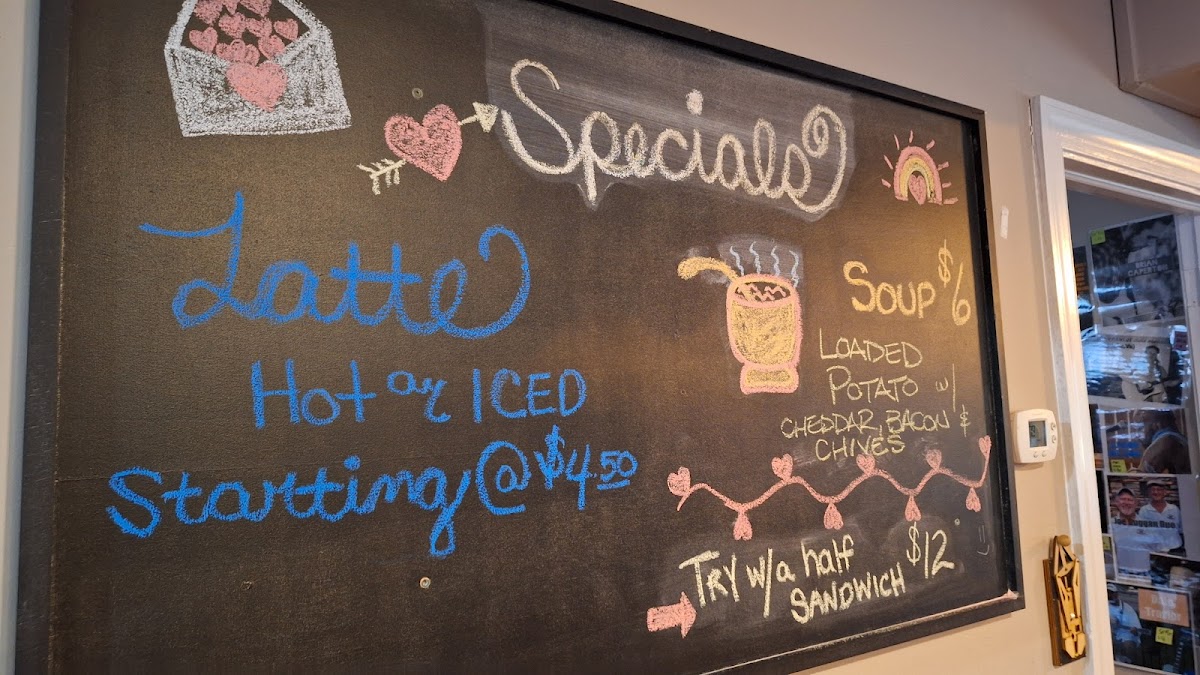 Specials
Latte
Hot or ICED
Starting @ $4.50
SOUP $6
LOADED
POTATO w/
CHEDDAR, BACON &
CHIVES
TRY w/a half
SANDWICH $12